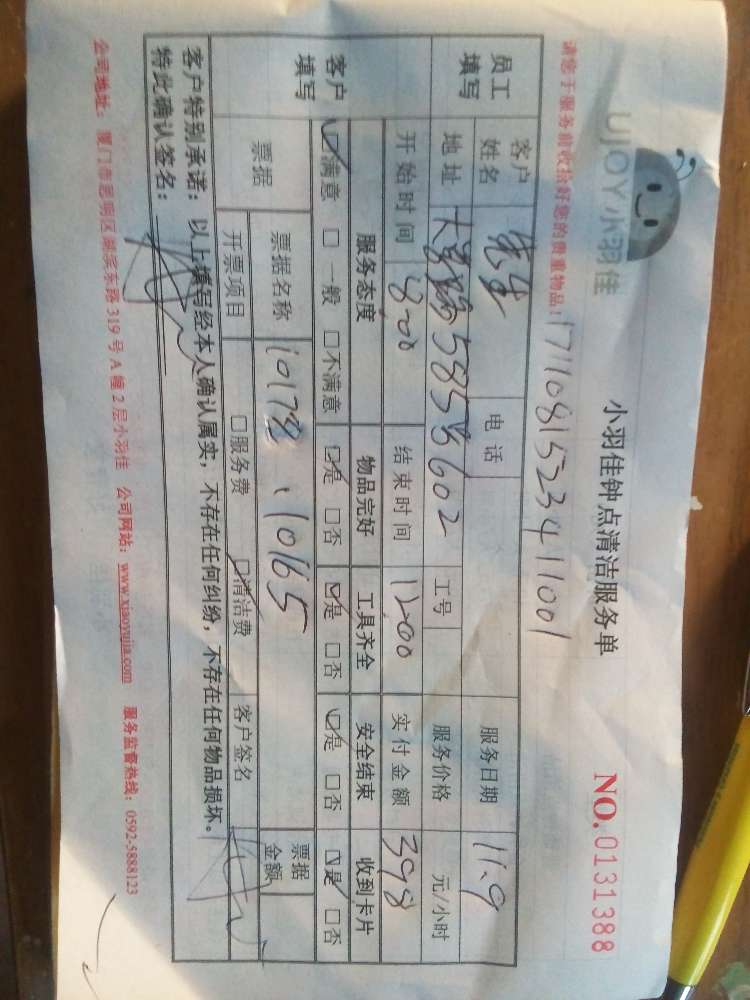 UJOY小羽佳
小羽佳钟点清洁服务单
NO. 0131388
请您于服务前收拾好您的贵重物品!
171108152341001
员工填写 客户姓名 先生 电话 服务日期 11.9
地址 585 602 工号 服务价格 元/小时
开始时间 800 结束时间 1200 实付金额 398
客户填写 服务态度 物品完好 工具齐全 安全结束 收到卡片
☑满意 □一般 □不满意 ☑是 □否 ☑是 □否 ☑是 □否 ☑是 □否
票据 票据名称 10178、10165 票据金额
开票项目 □服务费 ☑清洁费 客户签名
客户特别承诺：以上填写经本人确认属实，不存在任何纠纷，不存在任何物品损坏。
特此确认签名：
公司地址：厦门市思明区湖滨东路319号A幢2层小羽佳 公司网站：www.xiaoyujia.com 服务监督热线：0592-5888123